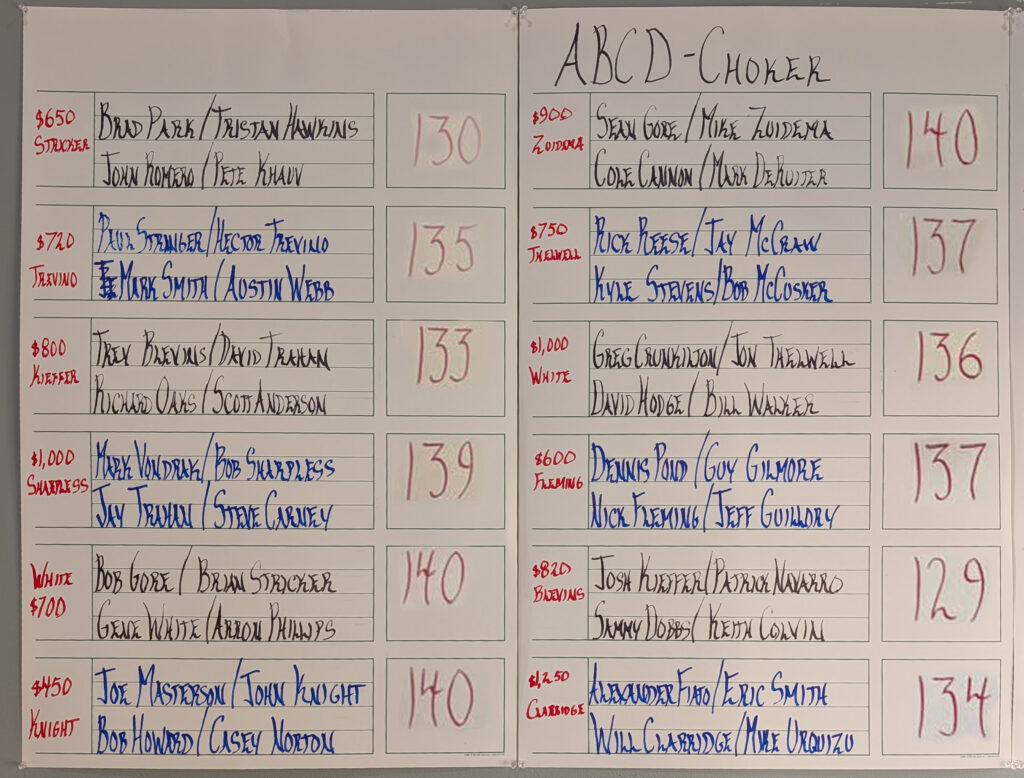 ABCD-CHOKER
$650
STRICKER
BRAD PARK/TRISTAN HAWKINS
JOHN ROMERO/PETE KHAUV
130
$720
TREVINO
PAUL STRANGER/HECTOR TREVINO
MARK SMITH/AUSTIN WEBB
135
$800
KIEFFER
TREY BLEVINS/DAVID TRAHAN
RICHARD OAKS/SCOTT ANDERSON
133
$1,000
SHARPLESS
MARK VONDRAK/BOB SHARPLESS
JAY TRAHAN/STEVE CARNEY
139
WHITE
$700
BOB GORE/BRIAN STRICKER
GENE WHITE/ARRON PHILLIPS
140
$450
KNIGHT
JOE MASTERSON/JOHN KNIGHT
BOB HOWARD/CASEY NORTON
140
$900
ZUIDEMA
SEAN GORE/MIKE ZUIDEMA
COLE CANNON/MARK DERUITER
140
$750
THELWELL
RICK REESE/JAY MCCRAW
KYLE STEVENS/BOB MCCOSKER
137
$1,000
WHITE
GREG CRUNKILTON/JON THELWELL
DAVID HODGE/BILL WALKER
136
$600
FLEMING
DENNIS POND/GUY GILMORE
NICK FLEMING/JEFF GUILLORY
137
$820
BLEVINS
JOSH KIEFFER/PATRICK NAVARRO
SAMMY DOBBS/KEITH COLVIN
129
$1,250
CLARRIDGE
ALEXANDER FIATO/ERIC SMITH
WILL CLARRIDGE/MIKE URQUIZU
134